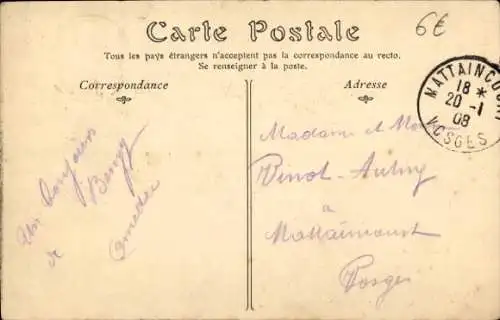 Carte Postale
6€
Tous les pays étrangers n'acceptent pas la correspondance au recto.
Se renseigner à la poste.
Correspondance
Adresse
MATTAINCOURT
18 *
20 -1
08
VOSGES
Un bonjour
de
Amédée
Madame et
Vinot-Aubry
à
Mattaincourt
Vosges